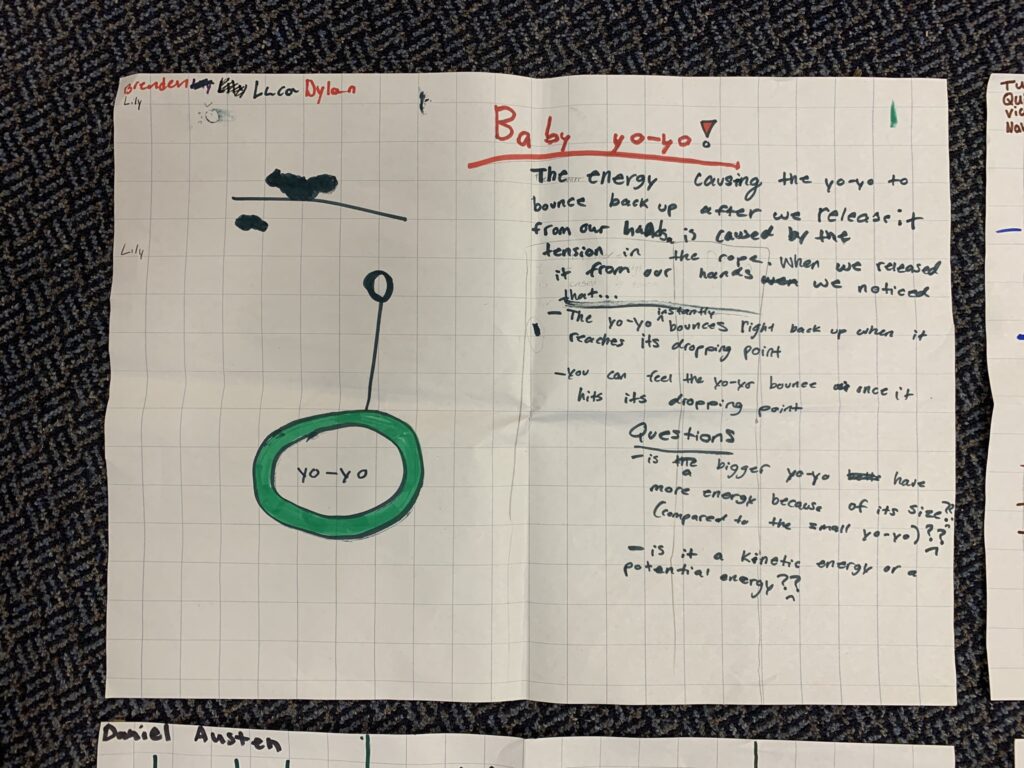 Brenden Luca Dylan
Lily
Baby yo-yo!
The energy causing the yo-yo to
bounce back up after we release it
from our hands, is caused by the
tension in the rope. When we released
it from our hands we noticed
that...
- The yo-yo instantly bounces right back up when it
reaches its dropping point
- you can feel the yo-yo bounce once it
hits its dropping point
Lily
yo-yo
Questions
- is a bigger yo-yo have
more energy because of its size??
(compared to the small yo-yo)??
- is it a kinetic energy or a
potential energy??
Daniel Austen
Tu
Qu
Vic
Nav